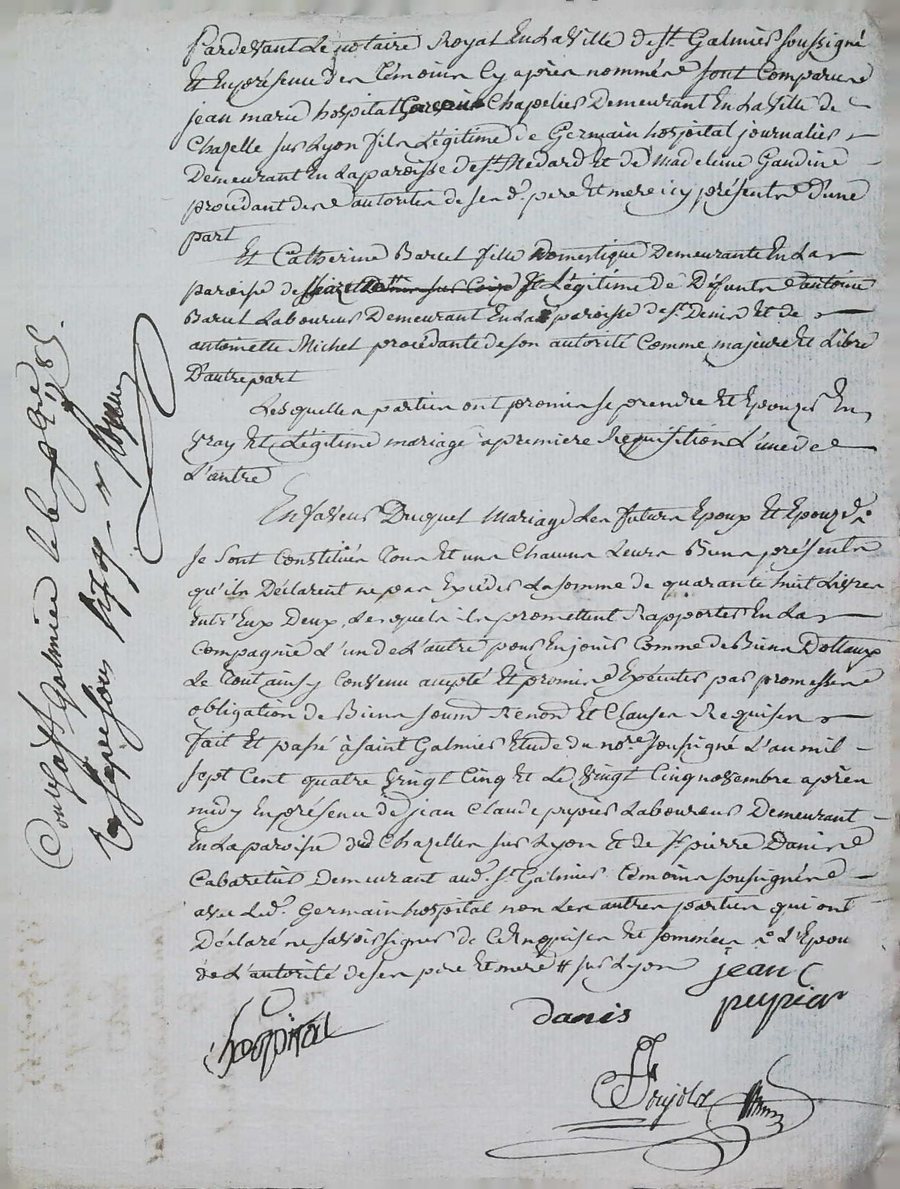 Pardevant Le notaire Royal En La Ville de st. Galmier soussigné
Et En présence des témoins Cy apres nommés sont Comparus
jean marie hospital Chapelier Demeurant En La Ville de
Chazelle sur Lyon fils Légitime de Germain hospital journalier
Demeurant En La paroisse de st. Medard Et de Madeleine Gaudine
procédant des autorités de ses d. pere Et mere icy présents D'une
part
Et Catherine Barcel fille Domestique Demeurante En La
paroisse de Légitime de Défunts antoine
Barcel Laboureur Demeurant En La paroisse de st. Denis Et de
antoinette Michel procédante de son autorité Comme majeure Et Libre
D'autre part
Lesquelles parties ont promis se prendre Et Epouzer En
vray Et Légitime mariage a premiere Requisition L'une de
L'autre
En faveur Duquel Mariage Les futurs Epoux Et Epouze
se sont Constitués tous Et uns Chacuns Leurs Biens présents
qu'ils Déclarent ne pas Excéder La somme de quarante huit Livres
Entr'Eux Deux, Lesquels ils promettent Rapporter En La
Compagnie L'un de L'autre pour En jouir Comme de Biens Dottaux
Le tout ainsy Convenu accepté Et promis Exécuter par promesses
obligation de Biens soumd Renond Et Clauses Requises
fait Et passé à Saint Galmier Etude du nore. soussigné L'an mil
sept Cent quatre vingt Cinq Et Le vingt Cinq novembre après
midy En présence de jean Claude Laboureur Demeurant
En La paroisse de Chazelles sur Lyon Et de st. pierre Danis
Cabaretier Demeurant aud. st. Galmier témoins soussignés
avec Led. Germain hospital non Les autres parties qui ont
Déclaré ne savoir signer de Ce Enquises Et sommées L'Epou
de L'autorité de ses pere Et mere # sur Lyon
jean
peyrier
Danis
hospital
Conlé à st Galmier le 9 Xbre 1785.